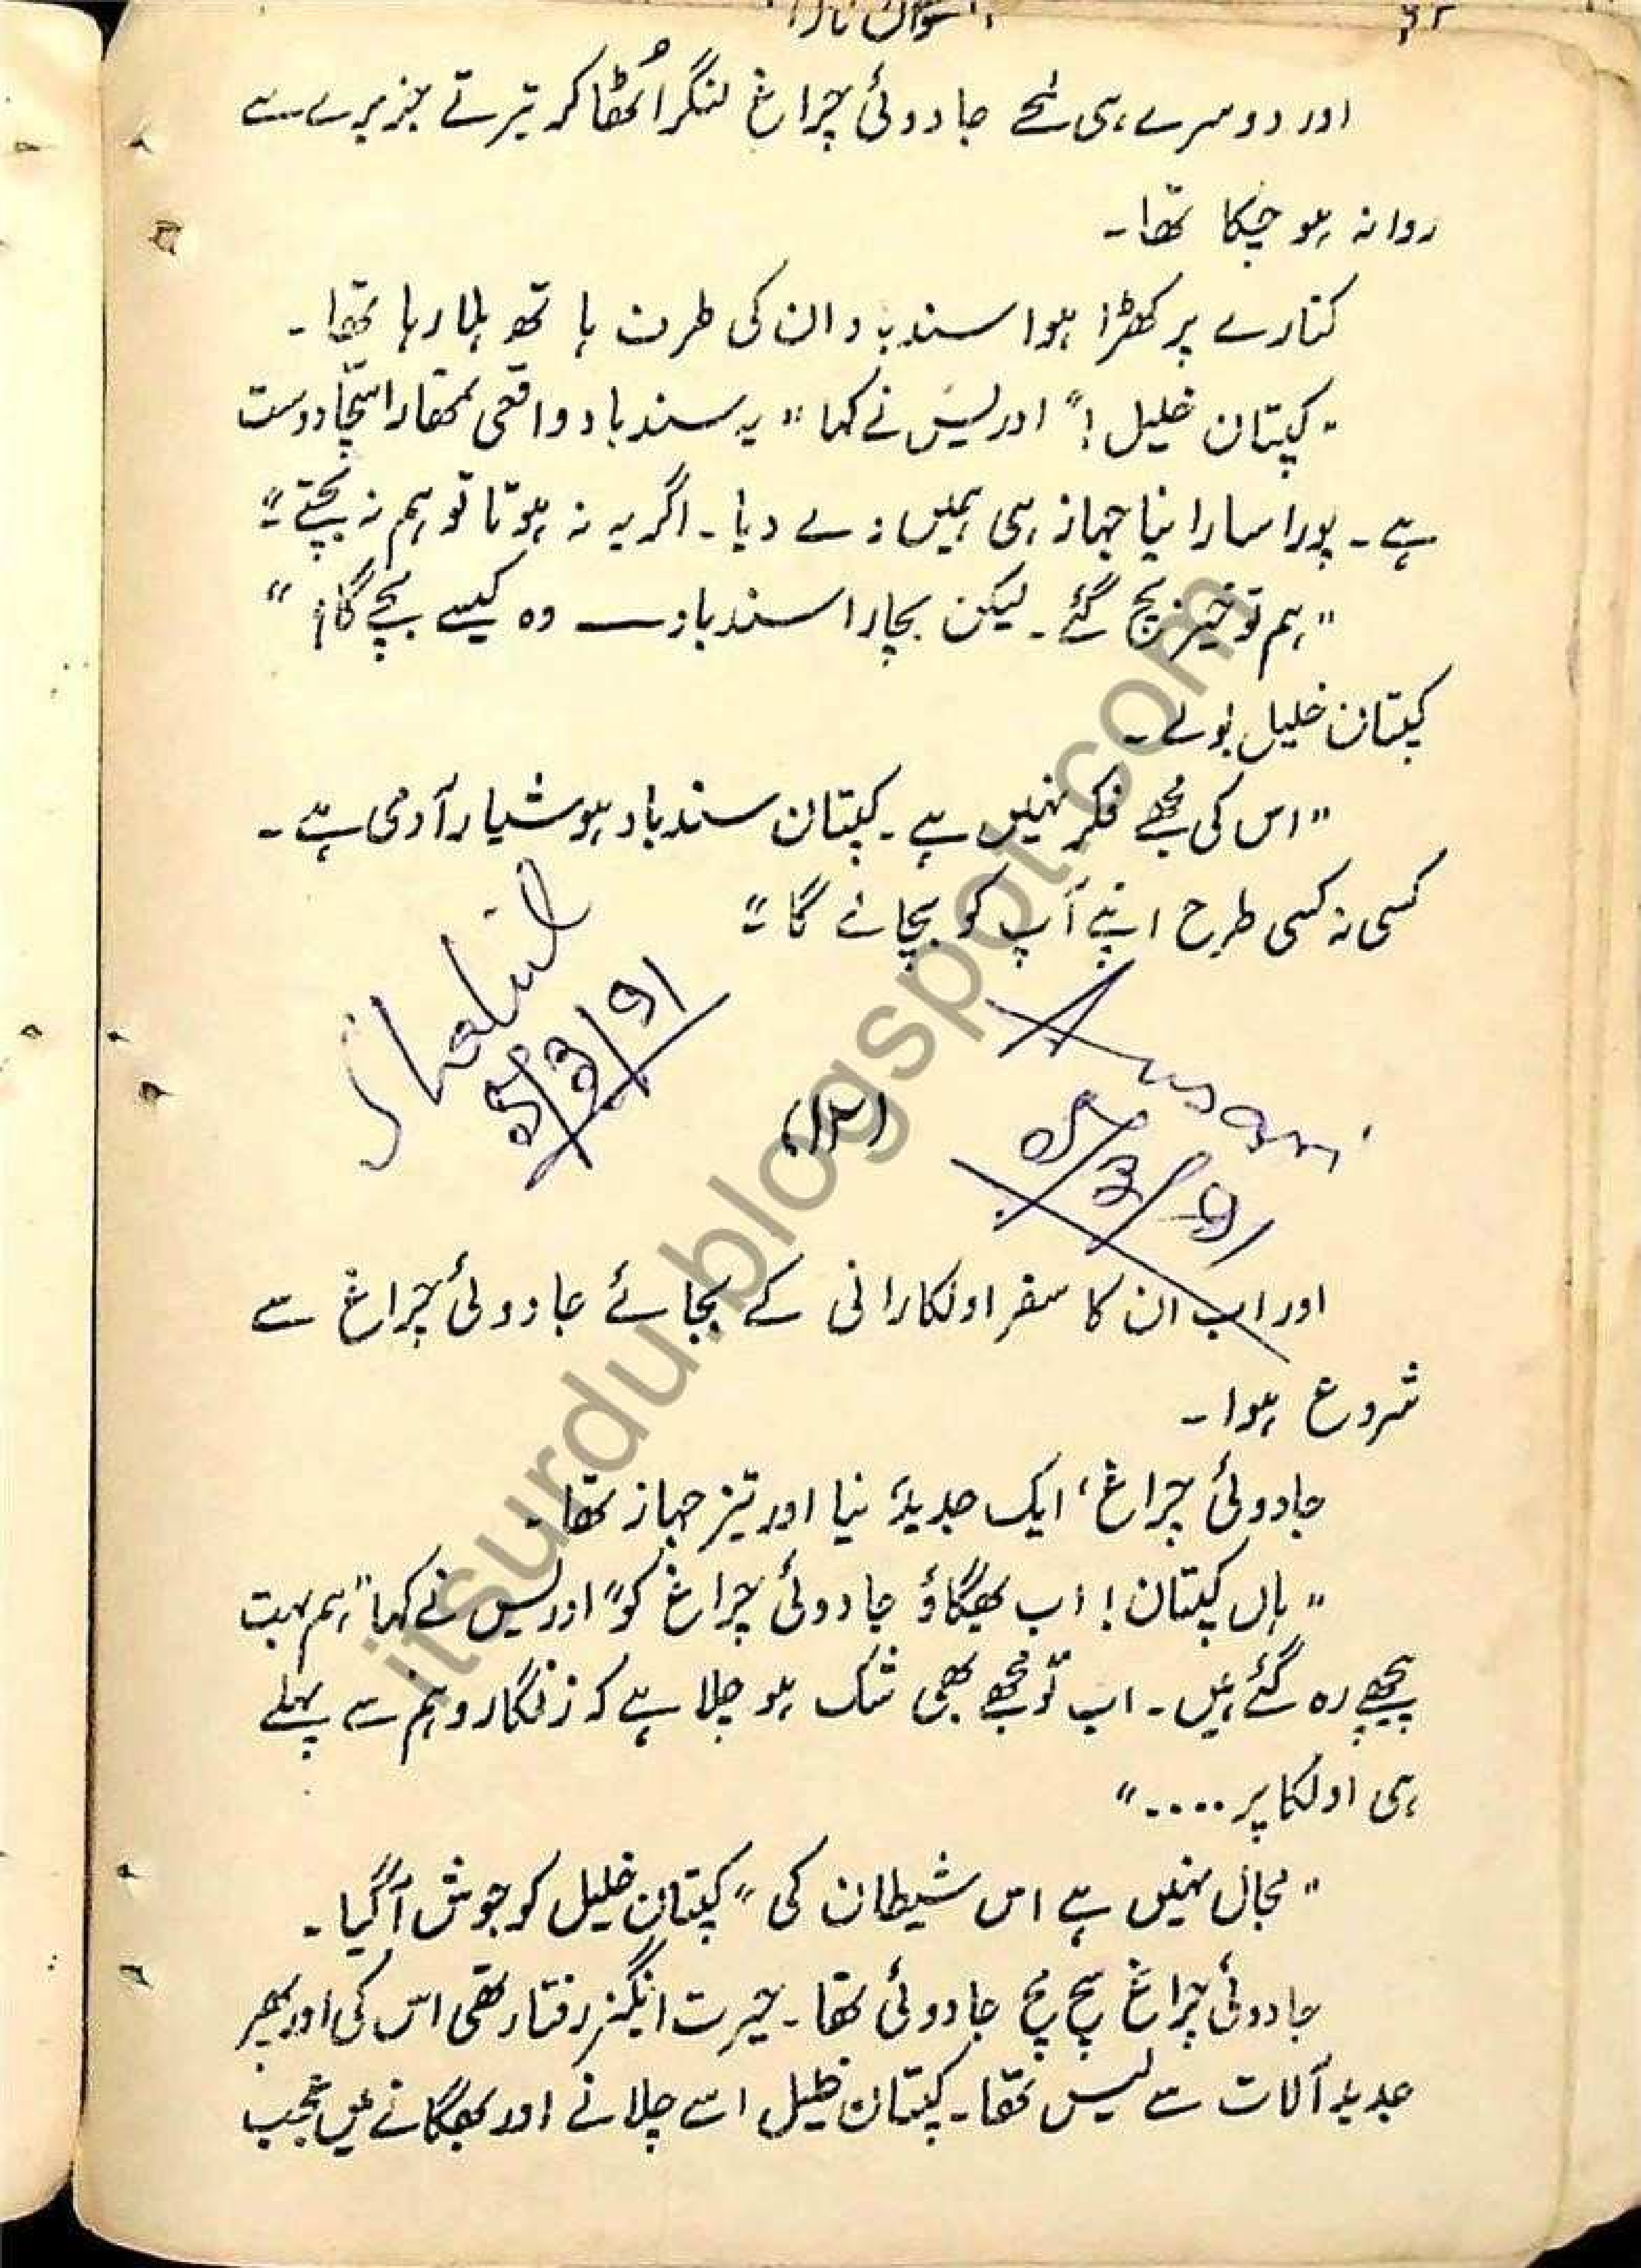 اور دوسرے ہی لمحے جادوئی چراغ لنگر اُٹھا کر تیرتے جزیرے سے
روانہ ہو چکا تھا۔
کنارے پر کھڑا ہوا سندباد ان کی طرف ہاتھ ہلا رہا تھا۔
"کپتان خلیل!" ادریس نے کہا "یہ سندباد واقعی تمھارا سچّا دوست
ہے۔ پورا سارا نیا جہاز ہی ہمیں دے دیا۔ اگر یہ نہ ہوتا تو ہم نہ بچتے"
"ہم تو خیر بچ گئے۔ لیکن بچارا سندباد — وہ کیسے بچے گا؟"
کپتان خلیل بولے۔
"اس کی مجھے فکر نہیں ہے۔ کپتان سندباد ہوشیار آدمی ہے۔
کسی نہ کسی طرح اپنے آپ کو بچائے گا"
Shakil
05/3/91
Ansari
05/3/91
(۱۲)
اور اب ان کا سفر اولکا رانی کے بجائے جادوئی چراغ سے
شروع ہوا۔
جادوئی چراغ، ایک جدید، نیا اور تیز جہاز تھا۔
"ہاں کپتان! اب بھگاؤ جادوئی چراغ کو" ادریس نے کہا "ہم بہت
پیچھے رہ گئے ہیں۔ اب تو مجھے بھی شک ہو چلا ہے کہ زنگارو ہم سے پہلے
ہی اولکا پر ...."
"مجال نہیں ہے اس شیطان کی" کپتان خلیل کو جوش آ گیا۔
جادوئی چراغ سچ مچ جادوئی تھا۔ حیرت انگیز رفتار تھی اس کی اور پھر
جدید آلات سے لیس تھا۔ کپتان خلیل اسے چلانے اور بھگانے میں عجب
itsurdu.blogspot.com